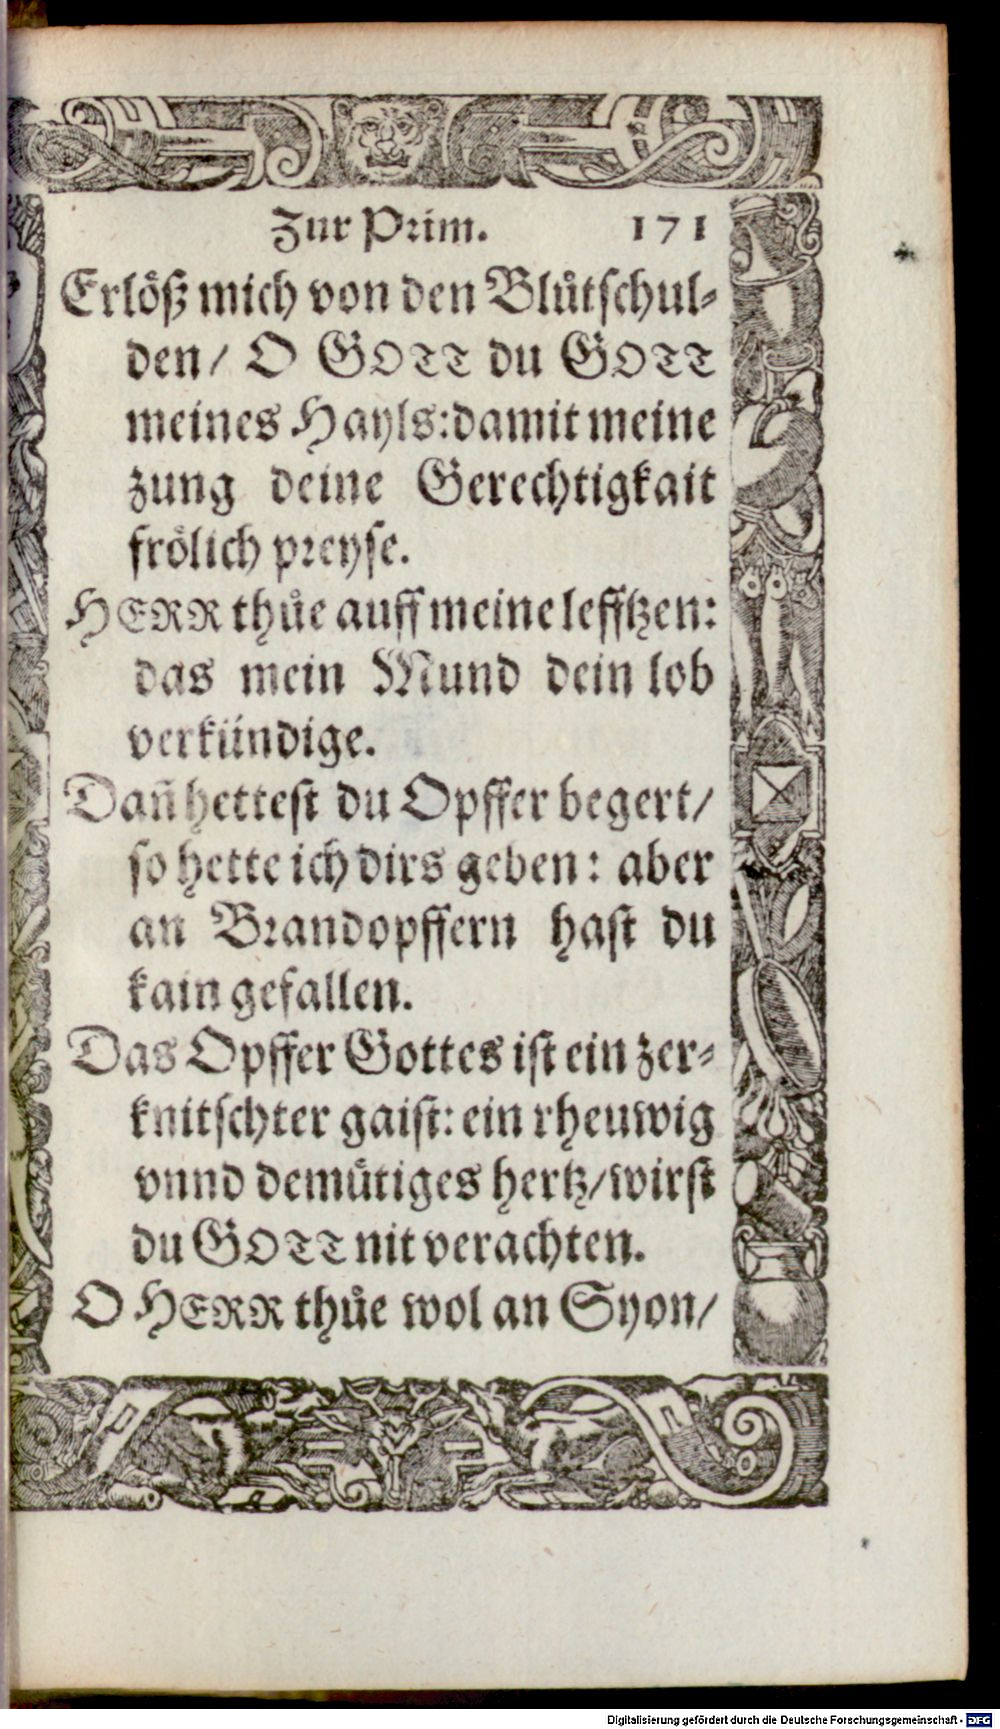 Zur Prim. 171
Erlöß mich von den Blůtschul-
den/ O GOTT du GOTT
meines Hayls: damit meine
zung deine Gerechtigkait
frölich preyse.
HERR thůe auff meine lefftzen:
das mein Mund dein lob
verkündige.
Dañ hettest du Opffer begert/
so hette ich dirs geben: aber
an Brandopffern hast du
kain gefallen.
Das Opffer Gottes ist ein zer-
knitschter gaist: ein rheuwig
vnnd demütiges hertz/ wirst
du GOTT nit verachten.
O HERR thůe wol an Syon/
Digitalisierung gefördert durch die Deutsche Forschungsgemeinschaft - DFG